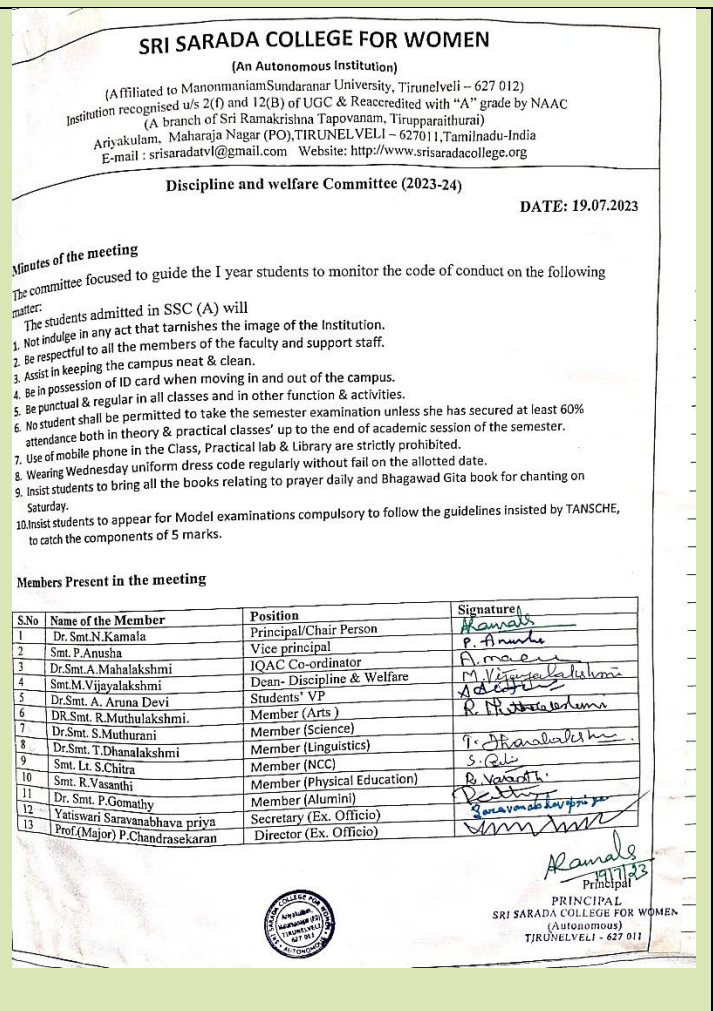 SRI SARADA COLLEGE FOR WOMEN
(An Autonomous Institution)
(Affiliated to ManonmaniamSundaranar University, Tirunelveli – 627 012)
Institution recognised u/s 2(f) and 12(B) of UGC & Reaccredited with “A” grade by NAAC
(A branch of Sri Ramakrishna Tapovanam, Tirupparaithurai)
Ariyakulam, Maharaja Nagar (PO),TIRUNELVELI – 627011,Tamilnadu-India
E-mail : srisaradatvl@gmail.com Website: http://www.srisaradacollege.org
Discipline and welfare Committee (2023-24)
DATE: 19.07.2023
Minutes of the meeting
The committee focused to guide the I year students to monitor the code of conduct on the following
matter:
The students admitted in SSC (A) will
1. Not indulge in any act that tarnishes the image of the Institution.
2. Be respectful to all the members of the faculty and support staff.
3. Assist in keeping the campus neat & clean.
4. Be in possession of ID card when moving in and out of the campus.
5. Be punctual & regular in all classes and in other function & activities.
6. No student shall be permitted to take the semester examination unless she has secured at least 60%
attendance both in theory & practical classes’ up to the end of academic session of the semester.
7. Use of mobile phone in the Class, Practical lab & Library are strictly prohibited.
8. Wearing Wednesday uniform dress code regularly without fail on the allotted date.
9. Insist students to bring all the books relating to prayer daily and Bhagawad Gita book for chanting on
Saturday.
10.Insist students to appear for Model examinations compulsory to follow the guidelines insisted by TANSCHE,
to catch the components of 5 marks.
Members Present in the meeting
S.No Name of the Member Position Signature
1 Dr. Smt.N.Kamala Principal/Chair Person
2 Smt. P.Anusha Vice principal P. Anusha
3 Dr.Smt.A.Mahalakshmi IQAC Co-ordinator
4 Smt.M.Vijayalakshmi Dean- Discipline & Welfare M.Vijayalakshmi
5 Dr.Smt. A. Aruna Devi Students’ VP
6 DR.Smt. R.Muthulakshmi. Member (Arts )
7 Dr.Smt. S.Muthurani Member (Science)
8 Dr.Smt. T.Dhanalakshmi Member (Linguistics) T. Dhanalakshmi
9 Smt. Lt. S.Chitra Member (NCC)
10 Smt. R.Vasanthi Member (Physical Education) R. Vasanthi
11 Dr. Smt. P.Gomathy Member (Alumini)
12 Yatiswari Saravanabhava priya Secretary (Ex. Officio) Saravanabhavapriya
13 Prof.(Major) P.Chandrasekaran Director (Ex. Officio)
19/7/23
Principal
PRINCIPAL
SRI SARADA COLLEGE FOR WOMEN
(Autonomous)
TIRUNELVELI - 627 011
SRI SARADA COLLEGE FOR WOMEN
Ariyakulam
Maharaja Nagar (PO)
TIRUNELVELI
627 011
AUTONOMOUS